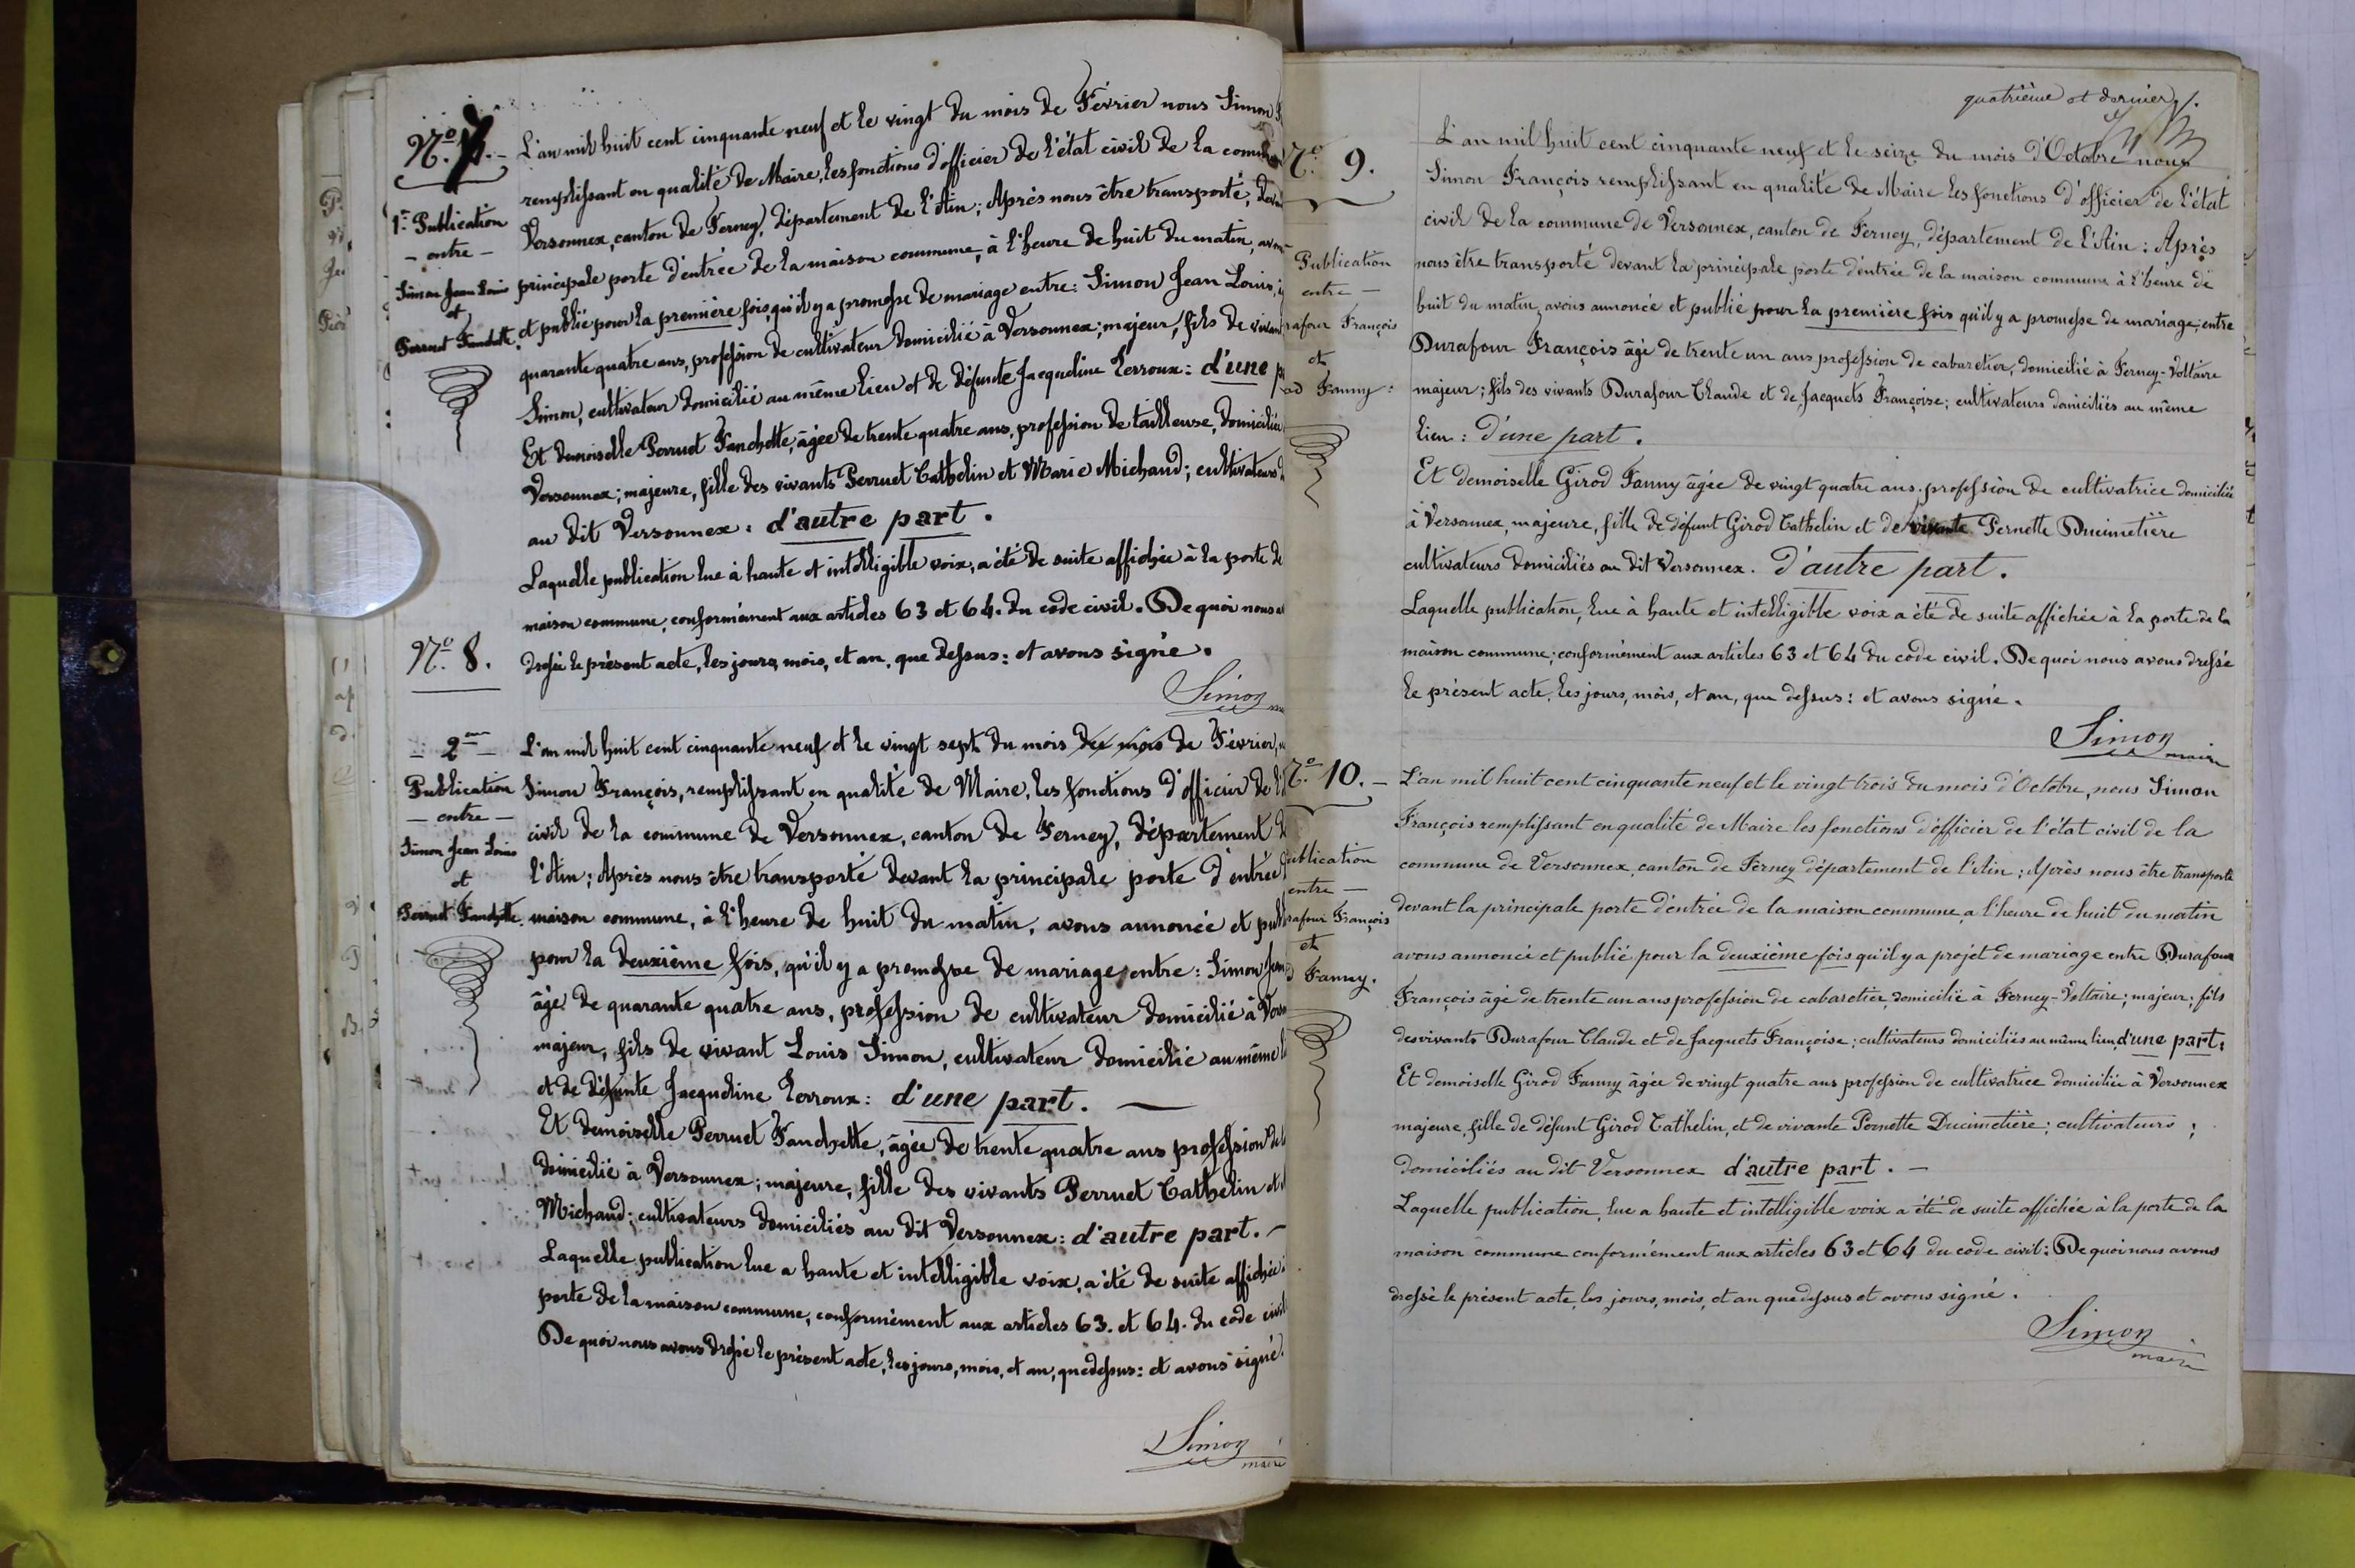 N.° 7. -
1.re Publication
- entre -
Simon Jean Louis
et
Perruet Fanchette.
L'an mil huit cent cinquante neuf et le vingt du mois de Février nous Simon
remplissant en qualité de Maire, les fonctions d'officier de l'état civil de la comm
Versonnex, canton de Ferney, département de l'Ain; Après nous être transporté, deva
principale porte d'entrée de la maison commune, à l'heure de huit du matin, avo
et publié pour la première fois, qu'il y a promesse de mariage entre: Simon Jean Louis,
quarante quatre ans, profession de cultivateur domicilié à Versonnex; majeur, fils de vivant
Simon, cultivateur domicilié au même lieu et de défunte Jacqueline Lerroux: d'une p
Et demoiselle Perruet Fanchette, âgée de trente quatre ans, profession de tailleuse, domiciliée
Versonnex; majeure, fille des vivants Perruet Cathelin et Marie Michaud; cultivateurs d
au dit Versonnex: d'autre part.
Laquelle publication lue à haute et intelligible voix, a été de suite affichée à la porte de
maison commune, conformément aux articles 63 et 64. du code civil. De quoi nous a
dressé le présent acte, les jours, mois, et an, que dessus: et avons signé.
Simon
N.° 8.
- 2.eme -
Publication
- entre -
Simon Jean Louis
et
Perruet Fanchette.
L'an mil huit cent cinquante neuf et le vingt sept du mois des mois de Février,
Simon François, remplissant en qualité de Maire, les fonctions d'officier de l'é
civil de la commune de Versonnex, canton de Ferney, département d
l'Ain; Après nous être transporté devant la principale porte d'entrée
maison commune, à l'heure de huit du matin, avons annoncé et publ
pour la deuxième fois, qu'il y a promesse de mariage, entre: Simon Jean
âgé de quarante quatre ans, profession de cultivateur domicilié à Vers
majeur, fils de vivant Louis Simon, cultivateur domicilié au même l
et de défunte Jacqueline Lerroux: d'une part. —
Et demoiselle Perruet Fanchette, âgée de trente quatre ans profession de t
domicilié à Versonnex; majeure, fille des vivants Perruet Cathelin et
Michaud; cultivateurs domiciliés au dit Versonnex: d'autre part. -
Laquelle publication lue a haute et intelligible voix, a été de suite affichée
porte de la maison commune, conformément aux articles 63. et 64. du code civil
De quoi nous avons dressé le présent acte, les jours, mois, et an, que dessus: et avons signé.
Simon
maire
quatrième et dernier
N.° 9.
Publication
entre -
rafour François
et
od Fanny:
L'an mil huit cent cinquante neuf et le seize du mois d'Octobre nous
Simon François remplissant en qualité de Maire les fonctions d'officier de l'état
civil de la commune de Versonnex, canton de Ferney, département de l'Ain: Après
nous être transporté devant la principale porte d'entrée de la maison commune à l'heure de
huit du matin, avons annoncée et publié pour la première fois qu'il y a promesse de mariage; entre
Durafour François âgé de trente un ans profession de cabaretier, domicilié à Ferney-Voltaire
majeur; fils des vivants Durafour Claude et de Jacquets Françoise; cultivateurs domiciliés au même
lieu: d'une part.
Et demoiselle Girod Fanny âgée de vingt quatre ans profession de cultivatrice domiciliée
à Versonnex, majeure, fille de défunt Girod Cathelin et de vivante Pernette Ducimetière
cultivateurs domiciliés au dit Versonnex. d'autre part.
Laquelle publication, lue à haute et intelligible voix a été de suite affichée à la porte de la
maison commune; conformément aux articles 63 et 64 du code civil. De quoi nous avons dressé
le présent acte, les jours, mois, et an, que dessus: et avons signé.
Simon
maire
N.° 10. -
ublication
entre -
rafour François
et
d Fanny.
L'an mil huit cent cinquante neuf et le vingt trois du mois d'Octobre, nous Simon
François remplissant en qualité de Maire les fonctions d'officier de l'état civil de la
commune de Versonnex, canton de Ferney département de l'Ain; Après nous être transporté
devant la principale porte d'entrée de la maison commune, a l'heure de huit du matin
avons annoncé et publié pour la deuxième fois qu'il y a projet de mariage entre Durafour
François âgé de trente un ans profession de cabaretier, domicilié à Ferney-Voltaire; majeur; fils
des vivants Durafour Claude et de Jacquets Françoise; cultivateurs domiciliés au même lieu, d'une part;
Et demoiselle Girod Fanny âgée de vingt quatre ans profession de cultivatrice domiciliée à Versonnex
majeure, fille de défunt Girod Cathelin, et de vivante Pernette Ducimetière; cultivateurs;
domiciliés au dit Versonnex d'autre part. -
Laquelle publication, lue a haute et intelligible voix a été de suite affichée à la porte de la
maison commune conformément aux articles 63 et 64 du code civil: De quoi nous avons
dressé le présent acte, les jours, mois, et an que dessus et avons signé.
Simon
maire